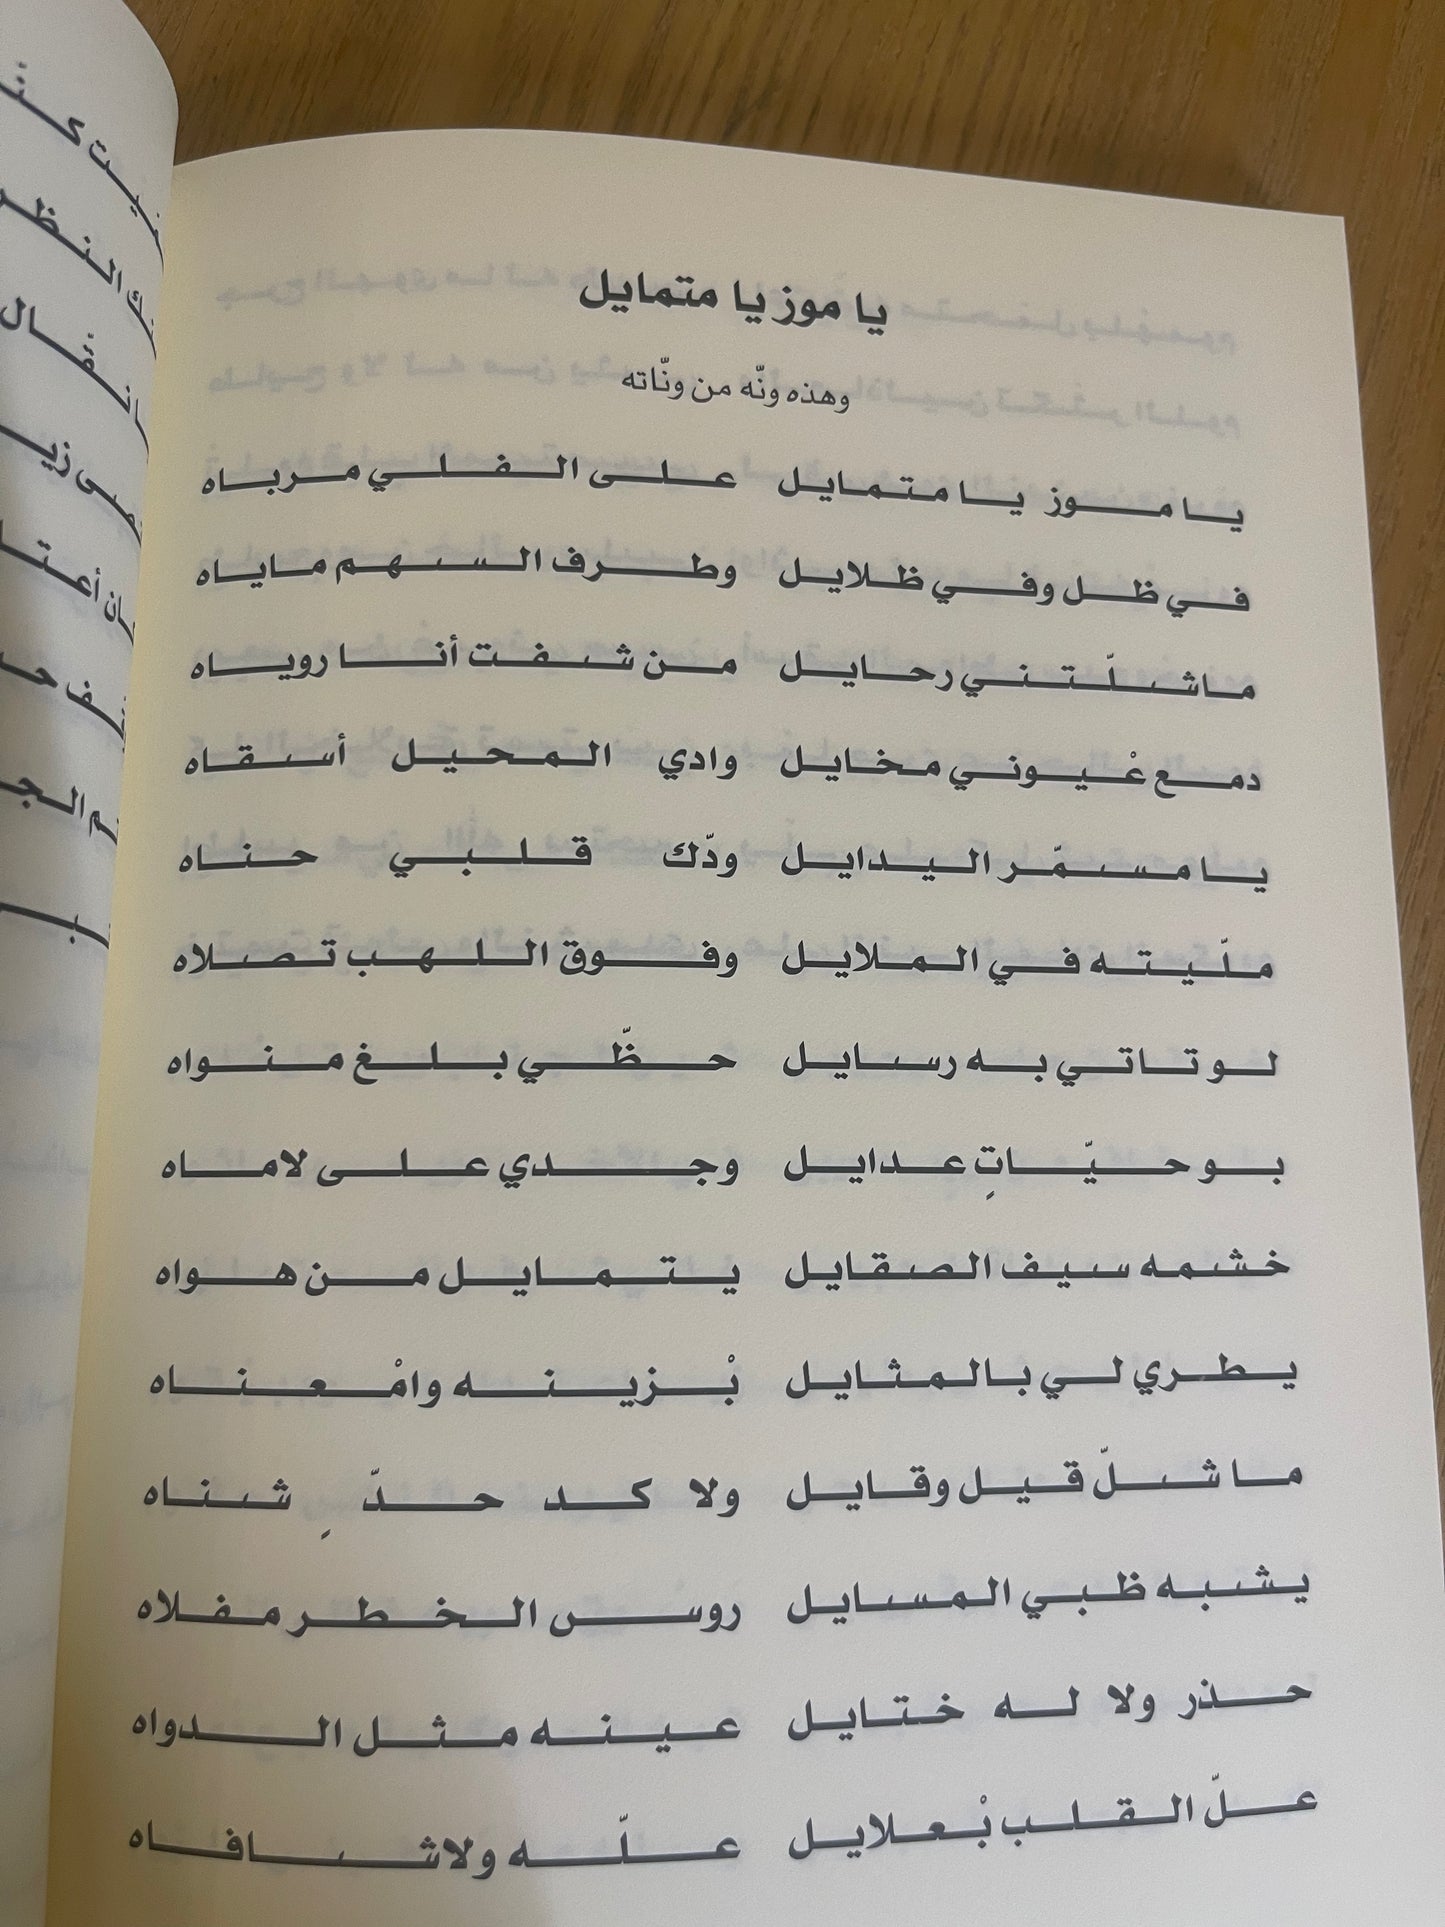 يا موز يا متمايل
وهذه ونّه من ونّاته
يا موز يا متمايل على الفلي مرباه
في ظل وفي ظلايل وطرف السهم ماياه
ماشلّتني رحايل من شفت أنا روياه
دمع عْيوني مخايل وادي المحيل أسقاه
يا مسمّر اليدايل ودّك قلبي حناه
ملّيته في الملايل وفوق اللهب تصلاه
لو تاتي به رسايل حظّي بلغ منواه
بو حيّاتٍ عدايل وجدي على لاماه
خشمه سيف الصقايل يتمايل من هواه
يطري لي بالمثايل بْزينه وامْعناه
ما شلّ قيل وقايل ولا كد حدٍّ شناه
يشبه ظبي المسايل روس الخطر مفلاه
حذر ولا له ختايل عينه مثل الدواه
علّ القلب بْعلايل علّه ولاشافاه
النظر